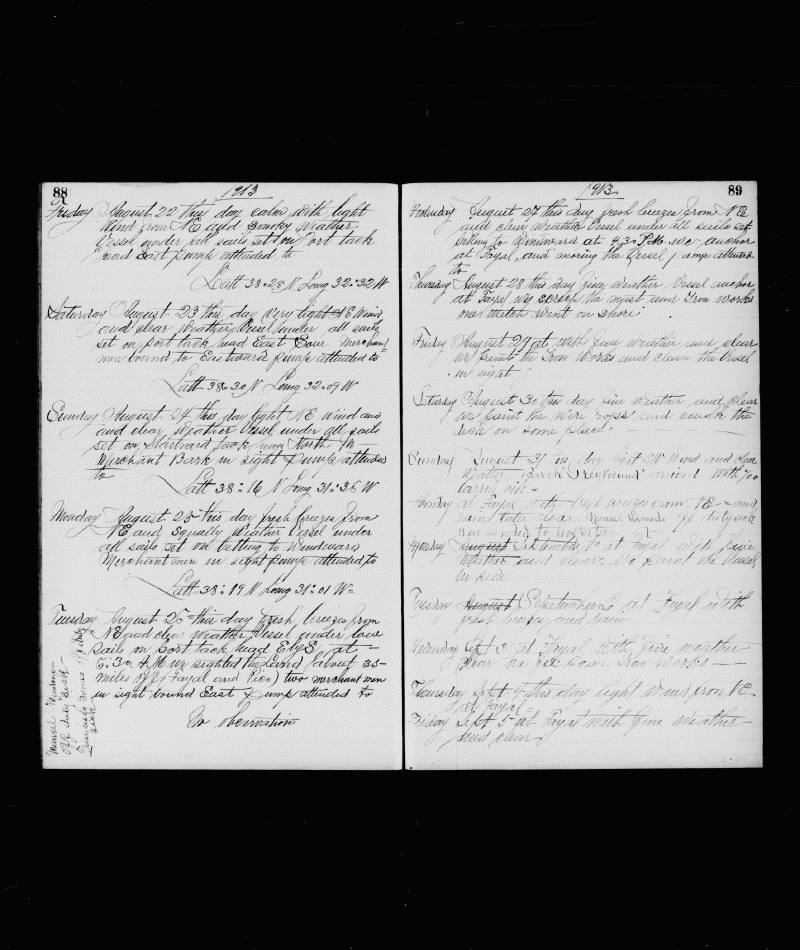 88
1913
Friday August 22 this day calm with light
Wind from NE and Smoky Weather
Vessel under all sails set on Port tack
head East pump attended to
Latt 38-28 N Long 32-32 W
Saturday August 23 this day very light NE Wind
and clear Weather Vessel under all sails
set on port tack head East Merchant
men bound to Eastward pump attended to
Latt 38-30 N Long 32-09 W
Sunday August 24 this day light NE wind and
and clear Weather Vessel under all sails
set on Starboard tack North
Merchant Bark in sight pump attended
to
Latt 38-16 N Long 31-36 W
Monday August 25 this day fresh breezes from
NE and Squally Weather Vessel under
all sails set on betting to Windward
Merchantmen in sight pump attended to
Latt 38-19 N Long 31-01 W
Tuesday August 26 this day fresh breezes from
NE and clear Weather Vessel under
sails on port tack head EbyS at
we sighted the land (about 35
miles off Fayal and Pico) two merchant men
in sight bound East pump attended to
No observation
off duty
sick
1913
89
August 27 this day fresh breezes from NE
and clear Weather Vessel under all sails set
to Windward at 4.30 P.M. we anchor
at Fayal and moring the Vessel pump attended
to
Thursday August 28 this day fine Weather Vessel anchor
at Fayal we the mast and Iron works
one watch went on shore
Friday August 29 at with fine weather and clear
we paint the Iron Works and clean the Vessel
in sight
Saturday August 30 this day fine Weather and clear
we paint the and the
deck on some place
Sunday August 31 this day light SW Wind and clear
Weather Bark Greyhound arrived with 700
barrels oil
Monday at Fayal with fresh breezes from NE and
rain later clear off duty sick
was sended to hospital
Monday August September 1 at Fayal with fine
Weather and clear We paint the Vessel
in side
Tuesday August September 2 at Fayal with
fresh breeze and rain
Wednesday Sept 3 at Fayal with fine weather
clear we fix some Iron works
Thursday Sept 4 this day light Wind from NE
at Fayal
Friday Sept 5 at Fayal with fine Weather
and clear